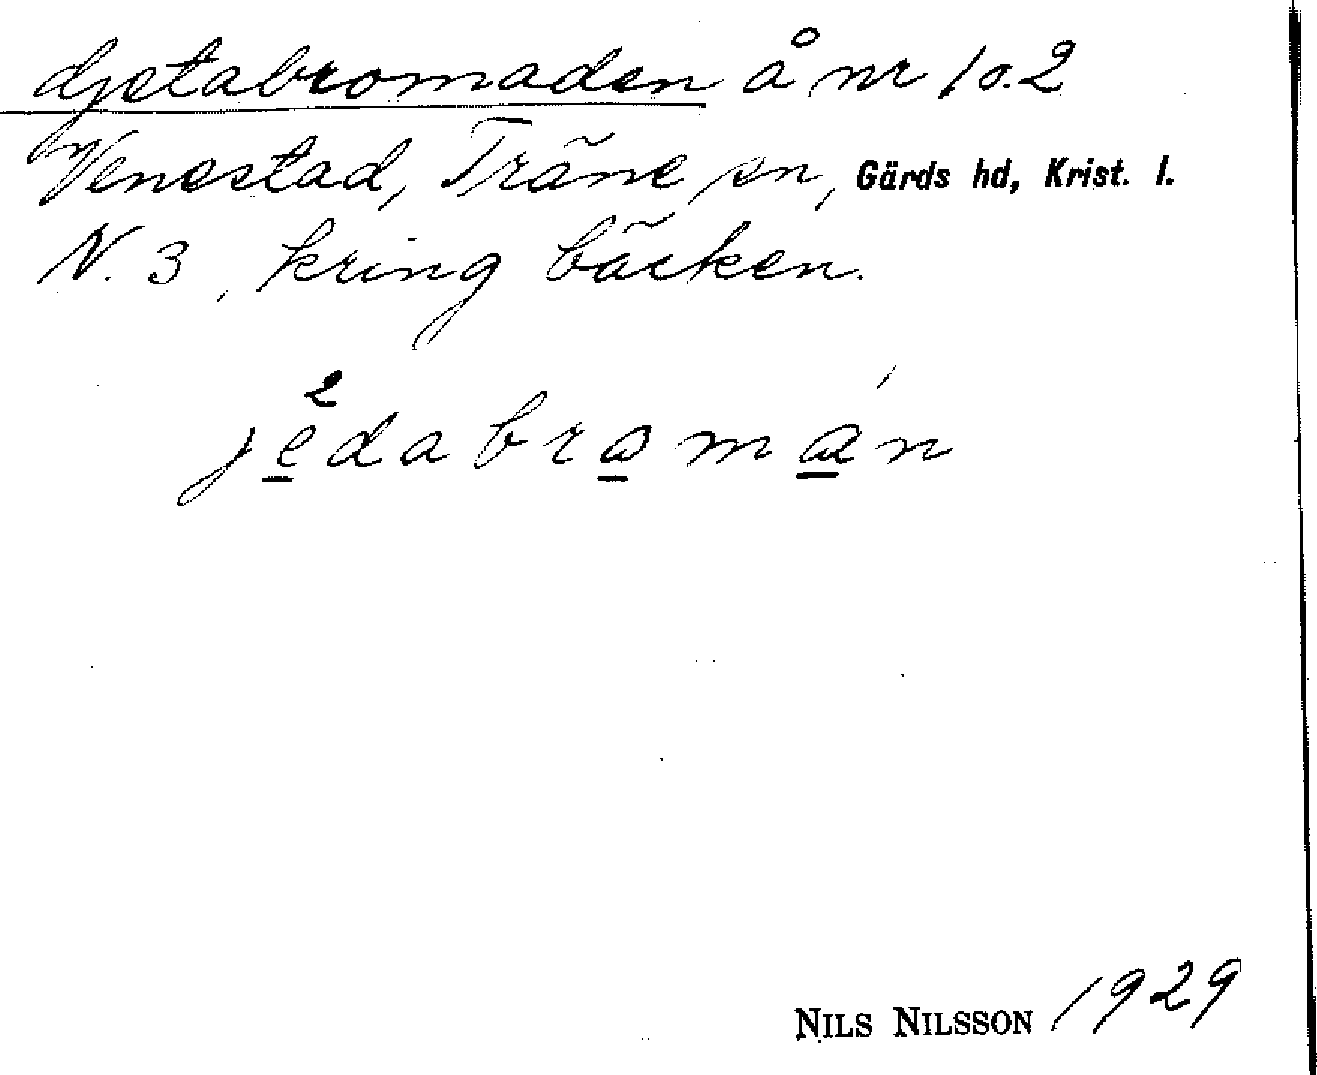 djetabromaden å nr 1 o. 2
Venestad, Träne sn, Gärds hd, Krist. l.
N. 3, kring bäcken.
jèdabromán
NILS NILSSON 1929